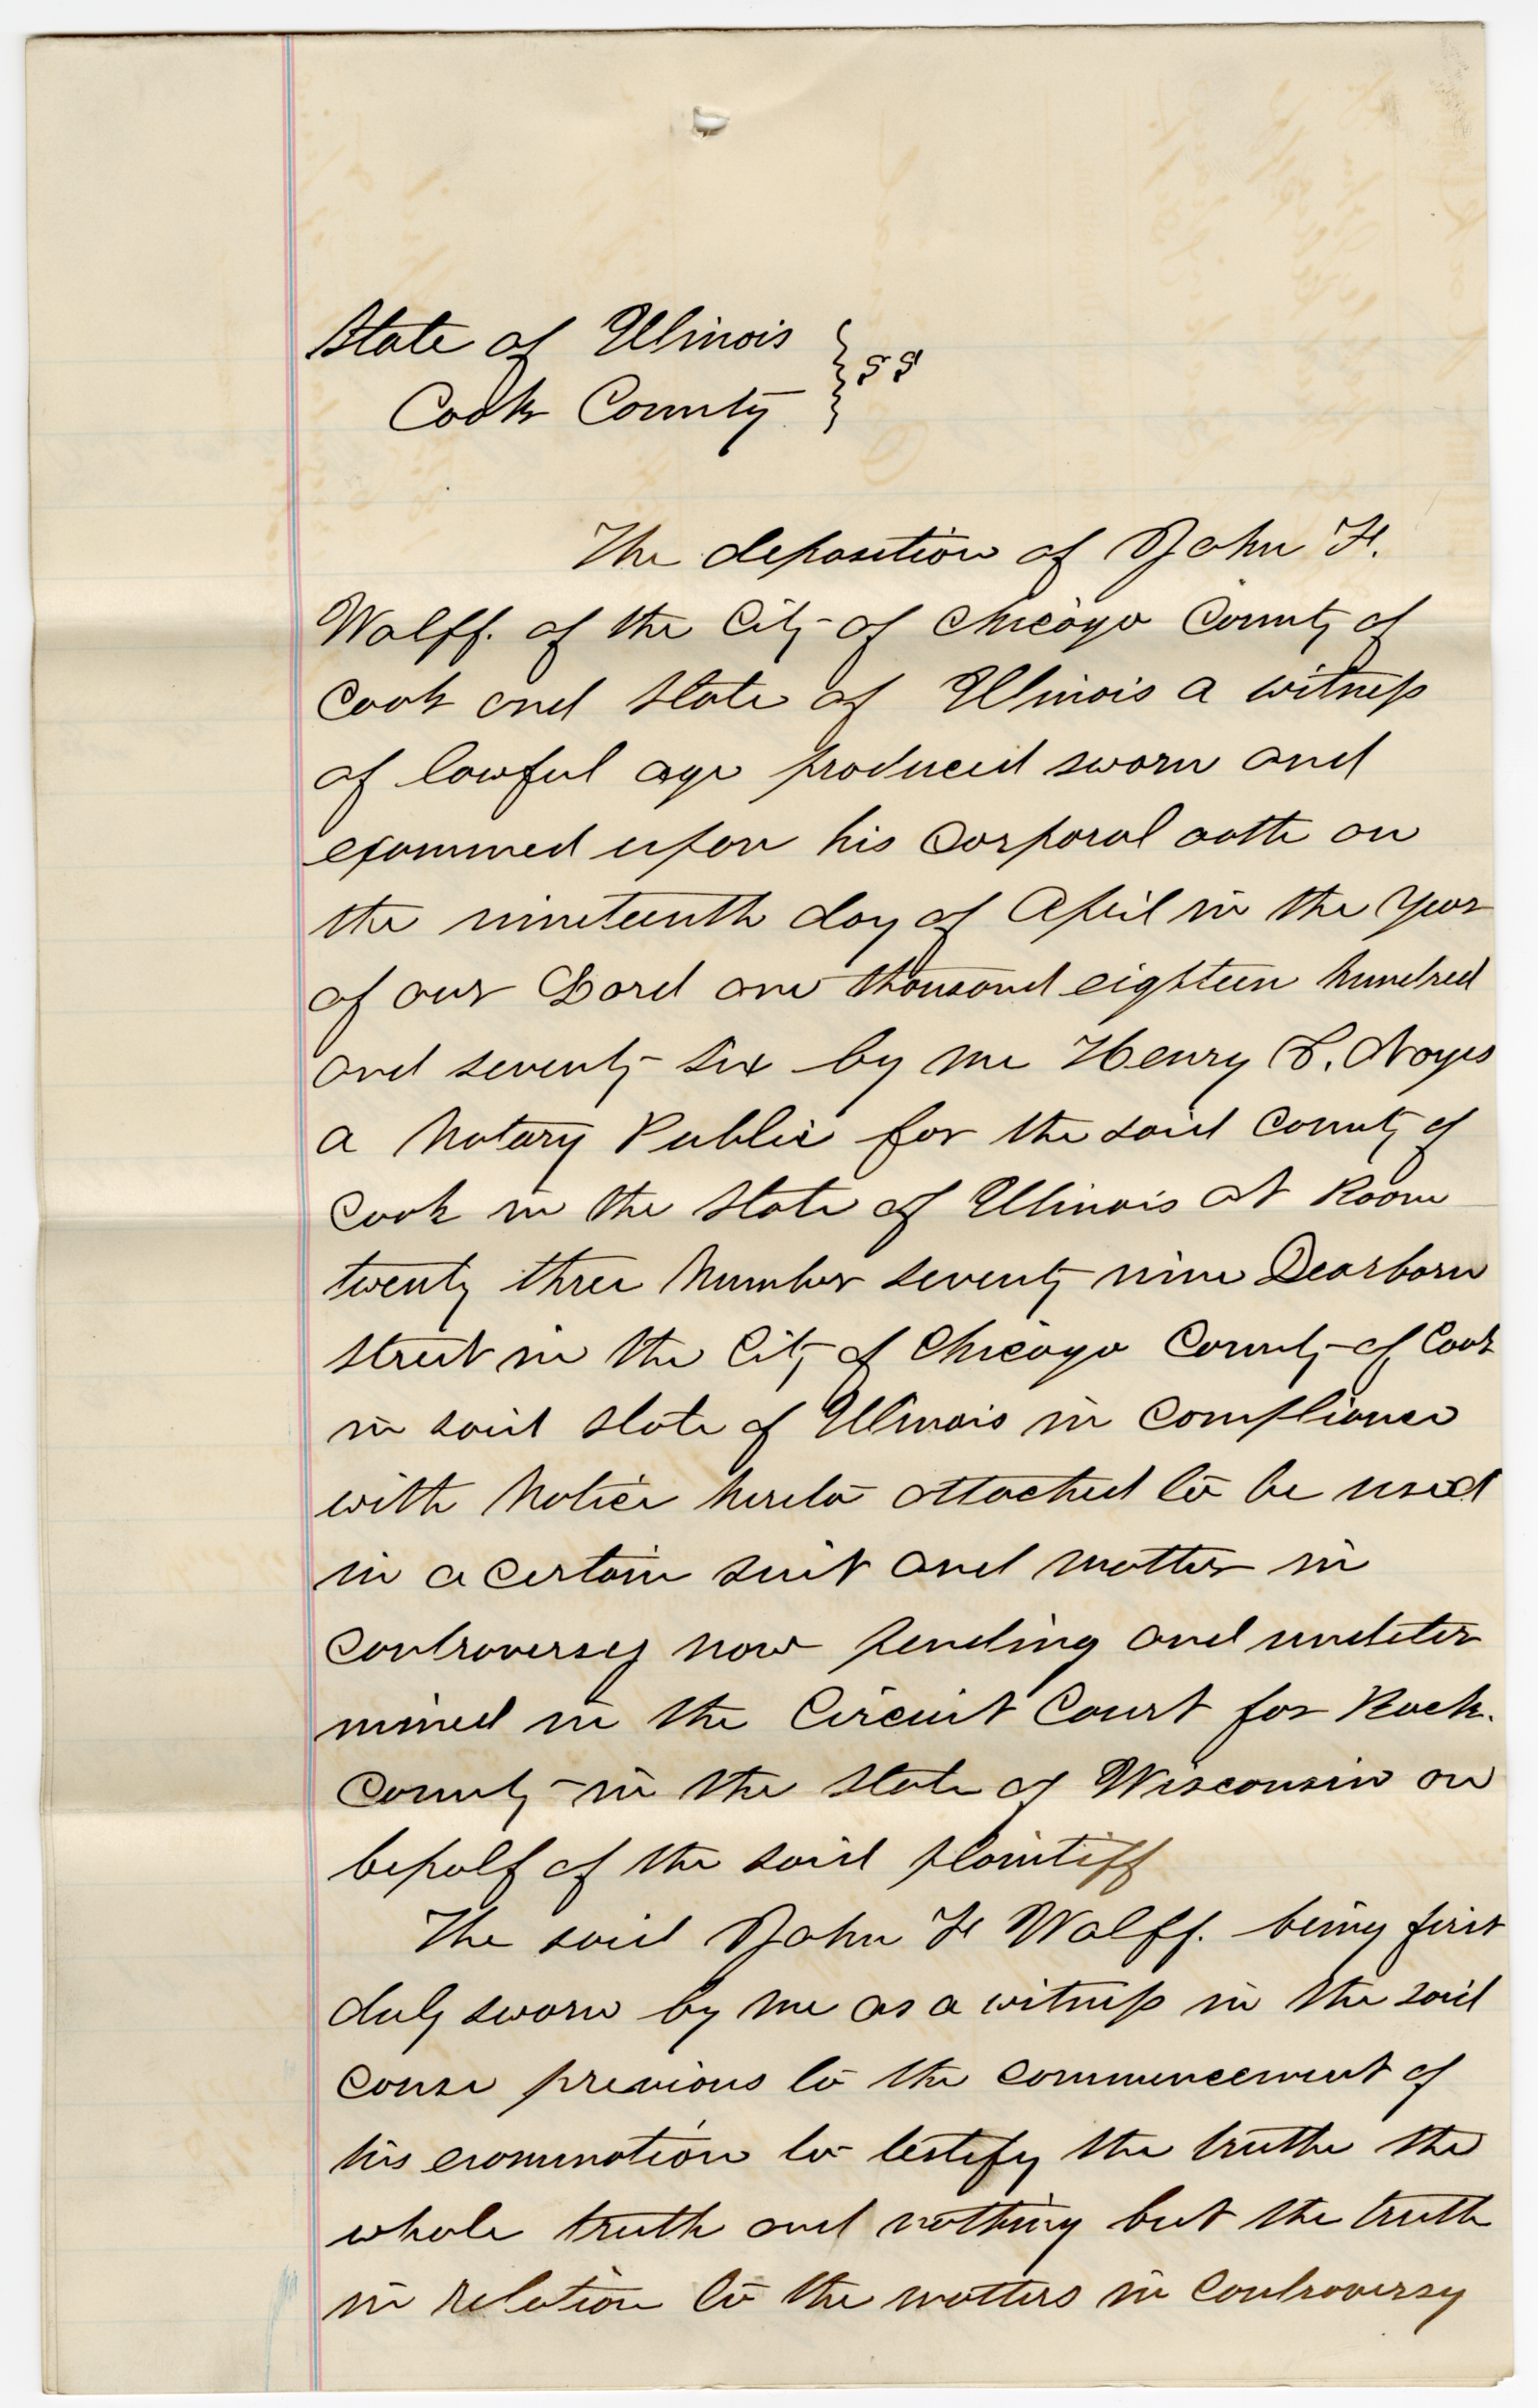 State of Illinois
Cook County } ss
The deposition of John F.
Wolff. of the City of Chicago County of
Cook and State of Illinois a witness
of lawful age produced sworn and
examined upon his corporal oath on
the nineteenth day of April in the Year
of our Lord one thousand eighteen hundred
and seventy six by me Henry L. Noyes
a Notary Public for the said County of
Cook in the State of Illinois at Room
twenty three Number seventy nine Dearborn
street in the City of Chicago County of Cook
in said State of Illinois in Compliance
with Notice hereto attached to be used
in a certain suit and matter in
Controversy now pending and undeter
mined in the Circuit Court for Rock.
County in the State of Wisconsin on
behalf of the said plaintiff
The said John F Wolff. being first
duly sworn by me as a witness in the said
cause previous to the commencement of
his examination to testify the truth the
whole truth and nothing but the truth
in relation to the matters in Controversy